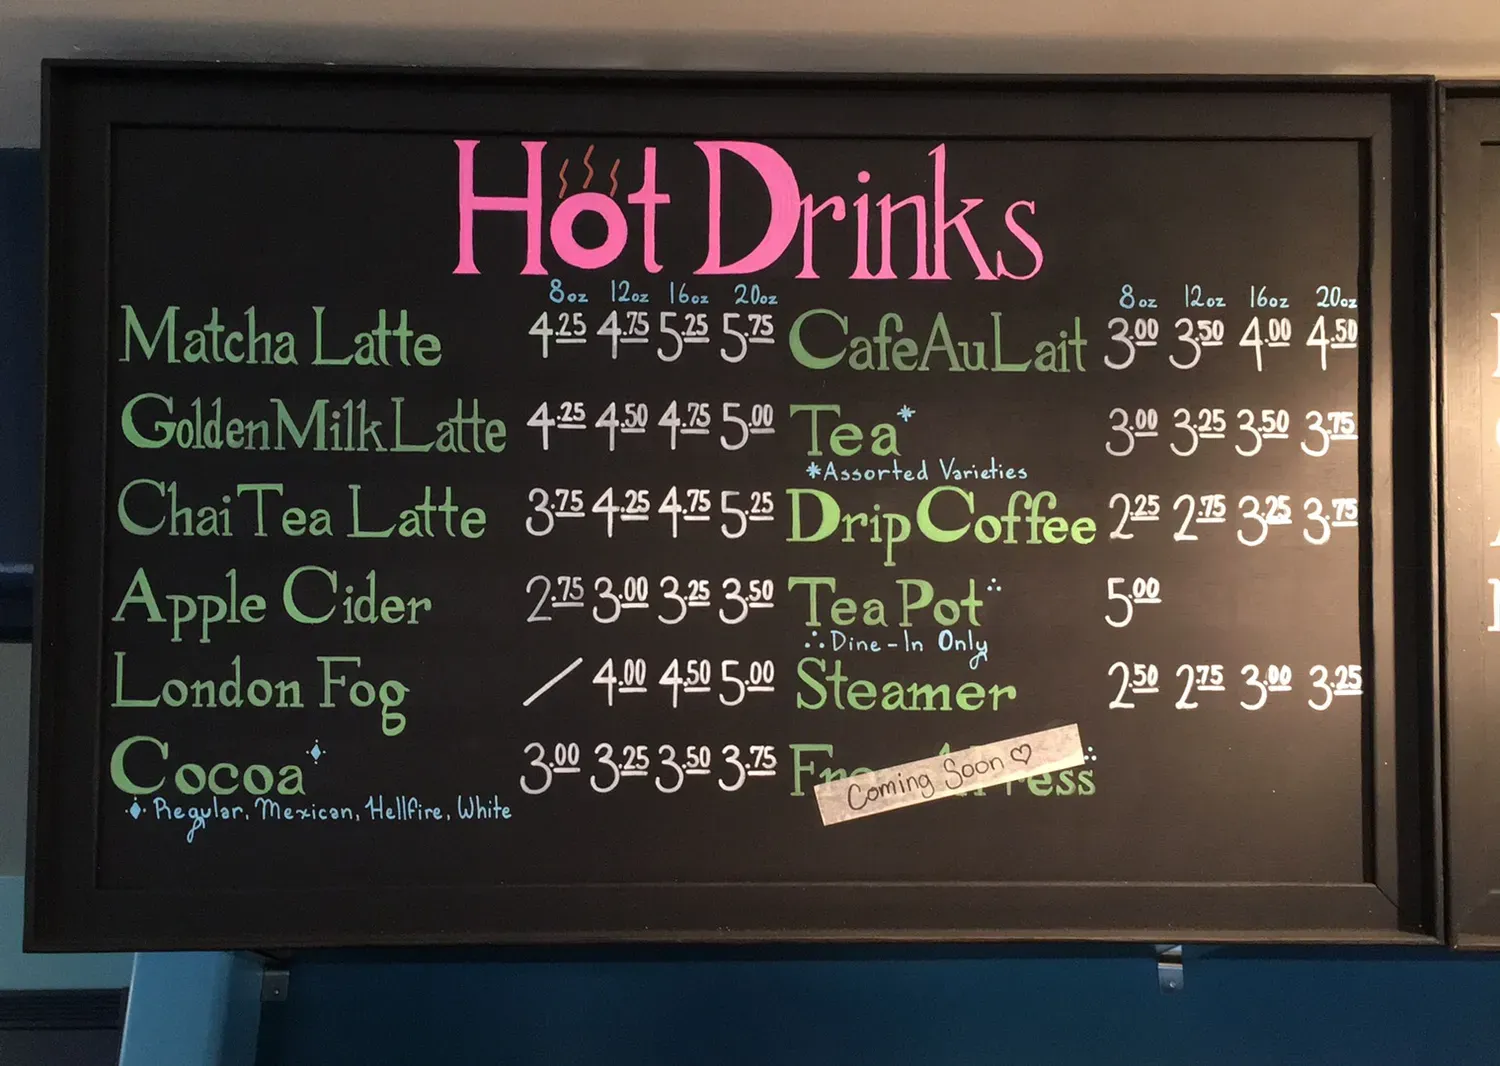 Hot Drinks
8oz 12oz 16oz 20oz
Matcha Latte 4.25 4.75 5.25 5.75
Golden Milk Latte 4.25 4.50 4.75 5.00
Chai Tea Latte 3.75 4.25 4.75 5.25
Apple Cider 2.75 3.00 3.25 3.50
London Fog / 4.00 4.50 5.00
Cocoa 3.00 3.25 3.50 3.75
Regular, Mexican, Hellfire, White
8oz 12oz 16oz 20oz
Cafe Au Lait 3.00 3.50 4.00 4.50
Tea* 3.00 3.25 3.50 3.75
*Assorted Varieties
Drip Coffee 2.25 2.75 3.25 3.75
Tea Pot 5.00
Dine-In Only
Steamer 2.50 2.75 3.00 3.25
Coming Soon ♡